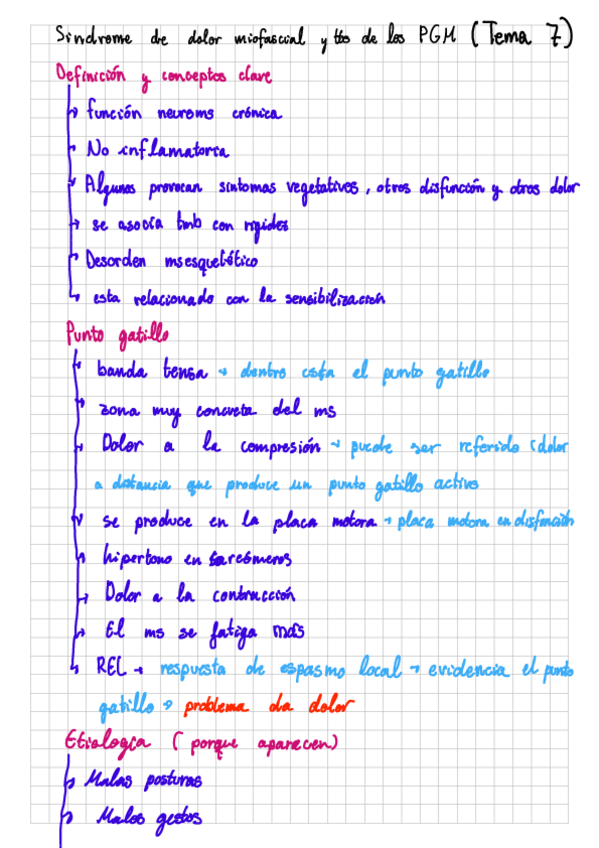 Sindrome de dolor miofascial y tto de los PGM (Tema 7)
Definición y conceptos clave
función neuroms crónica
No inflamatoria
Algunos provocan sintomas vegetativos, otros disfunción y otros dolor
se asocia tmb con rigidez
Desorden msesquelético
esta relacionado con la sensibilización
Punto gatillo
banda tensa → dentro esta el punto gatillo
zona muy concreta del ms
Dolor a la compresión → puede ser referido (dolor
a distancia que produce un punto gatillo activo
se produce en la placa motora → placa motora en disfunción
hipertono en sarcómeros
Dolor a la contracción
El ms se fatiga más
REL → respuesta de espasmo local → evidencia el punto
gatillo → problema da dolor
Etiologia (porque aparecen)
Malas posturas
Malos gestos